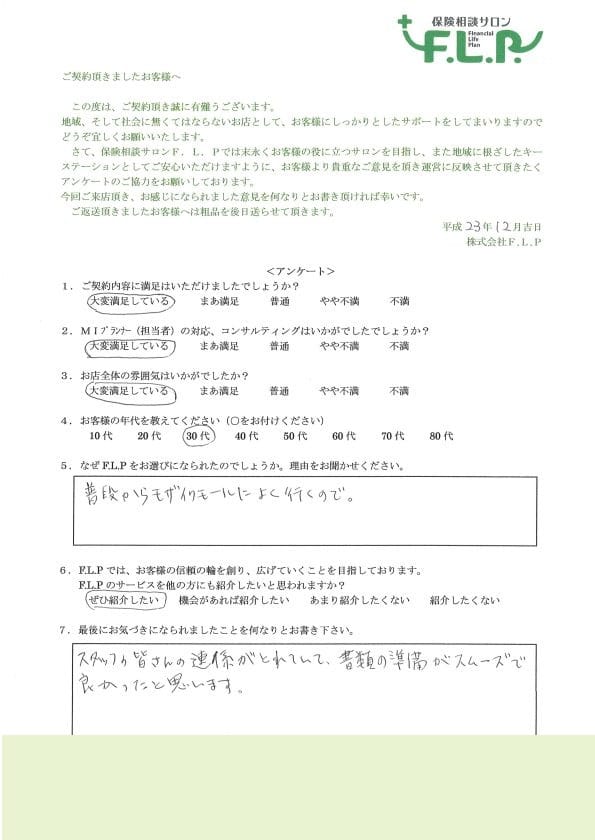 保険相談サロン
F.L.P.
Financial
Life
Plan
ご契約頂きましたお客様へ
この度は、ご契約頂き誠に有難うございます。
地域、そして社会に無くてはならないお店として、お客様にしっかりとしたサポートをしてまいりますので
どうぞ宜しくお願いいたします。
さて、保険相談サロンF．L．Pでは末永くお客様の役に立つサロンを目指し、また地域に根ざしたキー
ステーションとしてご安心いただけますように、お客様より貴重なご意見を頂き運営に反映させて頂きたく
アンケートのご協力をお願いしております。
今回ご来店頂き、お感じになられました意見を何なりとお書き頂ければ幸いです。
ご返送頂きましたお客様へは粗品を後日送らせて頂きます。
平成 23年 12月吉日
株式会社F.L.P
＜アンケート＞
1．ご契約内容に満足はいただけましたでしょうか？
大変満足している　まあ満足　普通　やや不満　不満
2．MIﾌﾟﾗﾝﾅｰ（担当者）の対応、コンサルティングはいかがでしたでしょうか？
大変満足している　まあ満足　普通　やや不満　不満
3．お店全体の雰囲気はいかがでしたか？
大変満足している　まあ満足　普通　やや不満　不満
4．お客様の年代を教えてください（○をお付けください）
10代　20代　30代　40代　50代　60代　70代　80代
5．なぜF.L.Pをお選びになられたのでしょうか。理由をお聞かせください。
普段からモザイクモールによく行くので。
6．F.L.Pでは、お客様の信頼の輪を創り、広げていくことを目指しております。
F.L.Pのサービスを他の方にも紹介したいと思われますか？
ぜひ紹介したい　機会があれば紹介したい　あまり紹介したくない　紹介したくない
7．最後にお気づきになられましたことを何なりとお書き下さい。
スタッフの皆さんの連係がとれていて、書類の準備がスムーズで
良かったと思います。